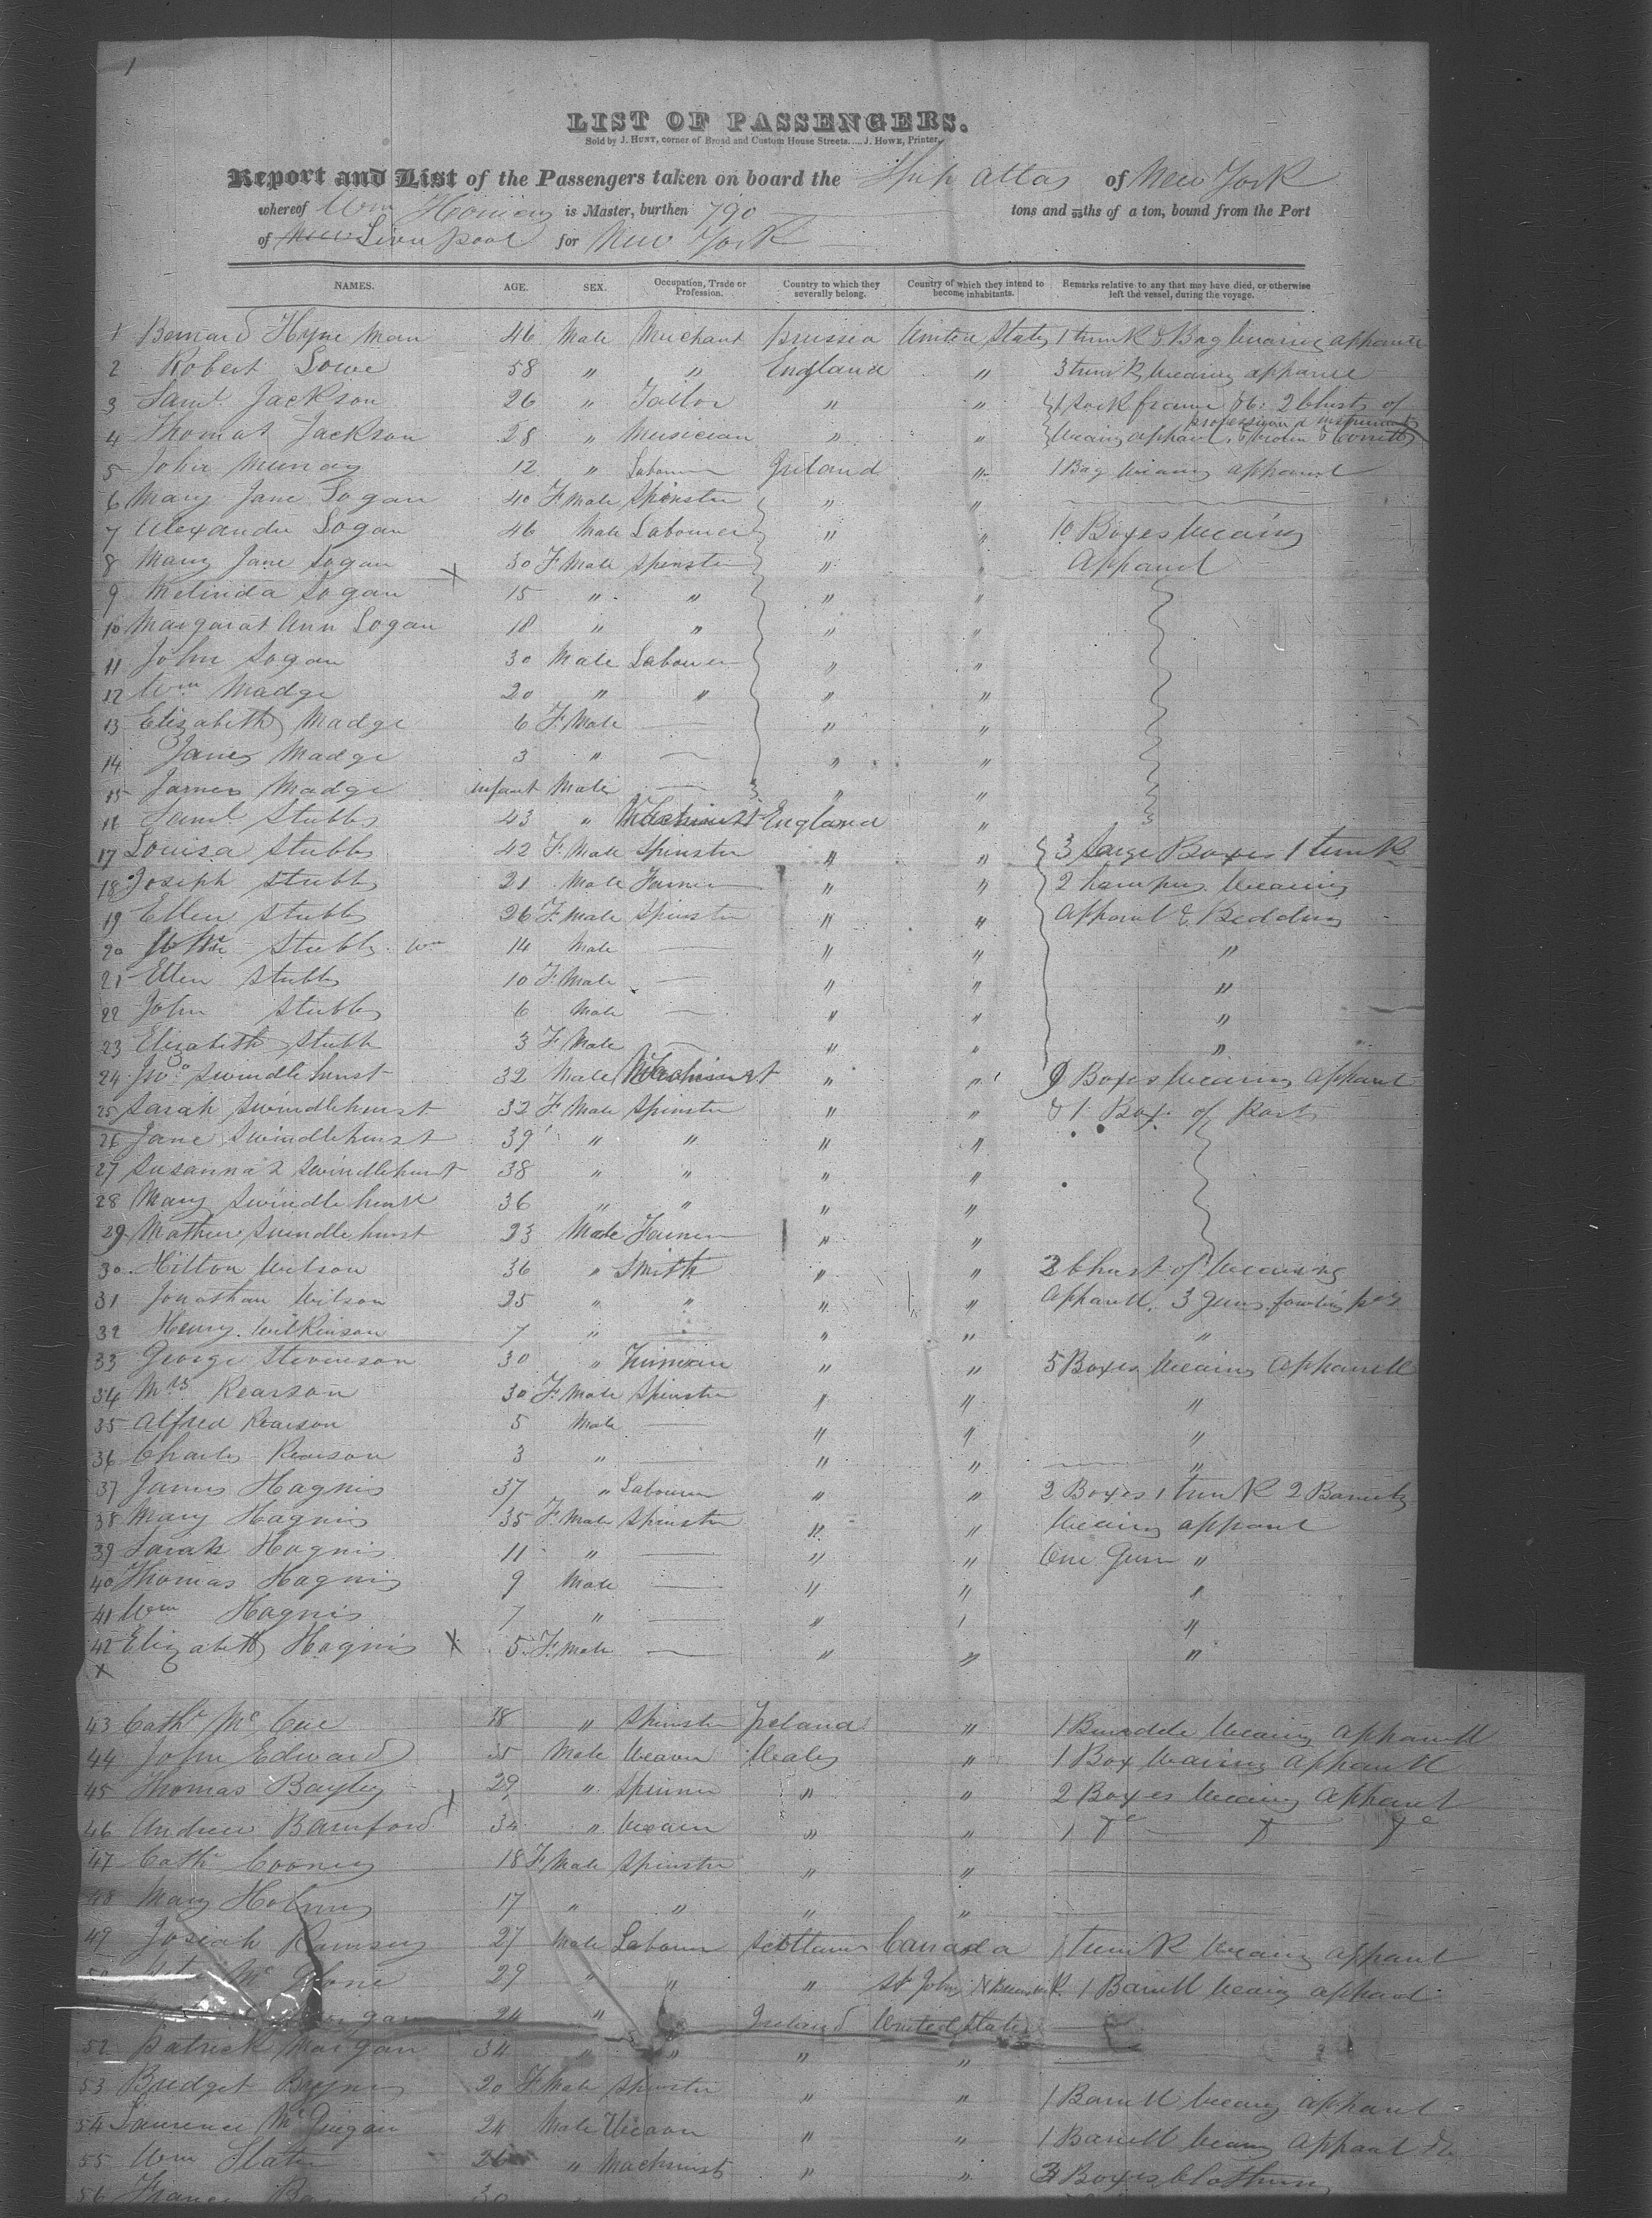 1
LIST OF PASSENGERS.
Sold by J. HUNT, corner of Broad and Custom House Streets.....J. HOWE, Printer.
Report and List of the Passengers taken on board the Ship Atlas of New York
whereof Wm is Master, burthen 790 tons and 95ths of a ton, bound from the Port
of Liverpool for New York
NAMES. AGE. SEX. Occupation, Trade or Profession. Country to which they severally belong. Country of which they intend to become inhabitants. Remarks relative to any that may have died, or otherwise left the vessel, during the voyage.
1 Bernard Hyne man 46 Male Merchant prussia United States 1 trunk & Bag wearing apparel
2 Robert Lowe 58 " " England " 3 trunks wearing apparel
3 Saml. Jackson 26 " Tailor " " 2 Chests of
4 Thomas Jackson 28 " Musician " " wearing apparel
5 John Murray 12 " Labourer Ireland " 1 Bag wearing apparel
6 Mary Jane Logan 40 F. Male Spinster " "
7 Alexander Logan 46 Male Labourer " " 10 Boxes wearing
8 Mary Jane Logan X 30 F Male Spinster " " Apparel
9 Melinda Logan 15 " " " "
10 Margarat Ann Logan 18 " " " "
11 John Logan 30 Male Labourer " "
12 Wm Madge 20 " " " "
13 Elizabeth Madge 6 F. Male — " "
14 Janes Madge 3 " — " "
15 James Madge infant Male — " "
16 Saml. Stubbs 43 " Machinist England "
17 Louisa Stubbs 42 F. Male Spinster " " 3 Large Boxes 1 trunk
18 Joseph Stubbs 21 Male Farmer " " 2 hampers wearing
19 Ellen Stubbs 26 F. Male Spinster " " Apparel & Bedding
20 Stubbs Wm 14 Male — " " "
21 Ellen Stubbs 10 F. Male — " " "
22 John Stubbs 6 Male — " " "
23 Elizabeth Stubbs 3 F Male — " " "
24 Jno. Swindlehurst 32 Male Machinist " " 9 Boxes wearing apparel
25 Sarah Swindlehurst 32 F Male Spinster " " & 1 Box of
26 Jane Swindlehurst 39 " " " "
27 Susanna Swindlehurst 38 " " " "
28 Mary Swindlehurst 36 " " " "
29 Mathew Swindlehurst 23 Male Farmer " "
30 Hilton Wilson 36 " Smith " " 2 Chest of wearing
31 Jonathan Wilson 25 " " " " Apparell. 3 guns
32 Henry Wilkinson 7 " — " " "
33 George Stevenson 30 " " " 5 Boxes wearing Apparell
34 Mrs Rearson 30 F. Male Spinster " " "
35 Alfred Rearson 5 Male — " " "
36 Charles Rearson 3 " — " " "
37 James Hagnis 37 " Labourer " " 2 Boxes 1 trunk 2 Barrels
38 Mary Hagnis 35 F. Male Spinster " " wearing apparel
39 Sarah Hagnis 11 " — " " One Gun "
40 Thomas Hagnis 9 Male — " " "
41 Wm Hagnis 7 " — " " "
42 Elizabeth Hagnis X 5 F. Male — " " "
X
43 Cathr. McCue 18 " Spinster Ireland " 1 Bundle wearing apparell
44 John Edward 35 Male Weaver Wales " 1 Box wearing apparell
45 Thomas Bayley 29 " Spinner " " 2 Boxes wearing apparel
46 Andrew Bamford 34 " Weaver " " 1
47 Cathr. Cooney 18 F Male Spinster " "
48 Mary Holmes 17 " " " "
49 Josiah Ramsey 27 Male Labourer Canada 1 trunk wearing apparel
29 " " " St Johns N Brunswick 1 Barrell wearing apparel
24 " Ireland United States
52 Patrick Morgan 34 " " " "
53 Bridget Byrnes 20 F Male Spinster " " 1 Barrell wearing apparel
54 Laurence 24 Male Weaver " " 1 Barrell wearing apparel
55 Wm Slater 26 " Machinist " " 3 Boxes Clothing
56 Frances 30